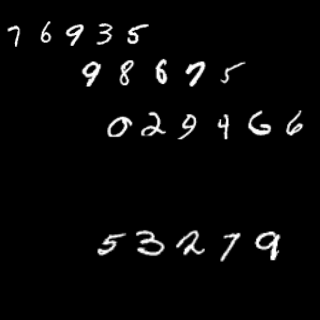 76935
98675
029466
53279